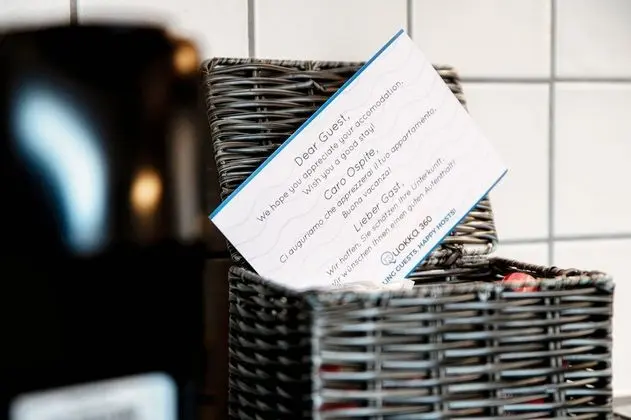 Dear Guest,
We hope you appreciate your accomodation,
Wish you a good stay!
Caro Ospite,
Ci auguriamo che apprezzerai il tuo appartamento,
Buona vacanza!
Lieber Gast,
Wir hoffen, Sie schätzen Ihre Unterkunft,
Wir wünschen Ihnen einen guten Aufenthalt!
QUOKKA 360
GUESTS, HAPPY HOSTS!